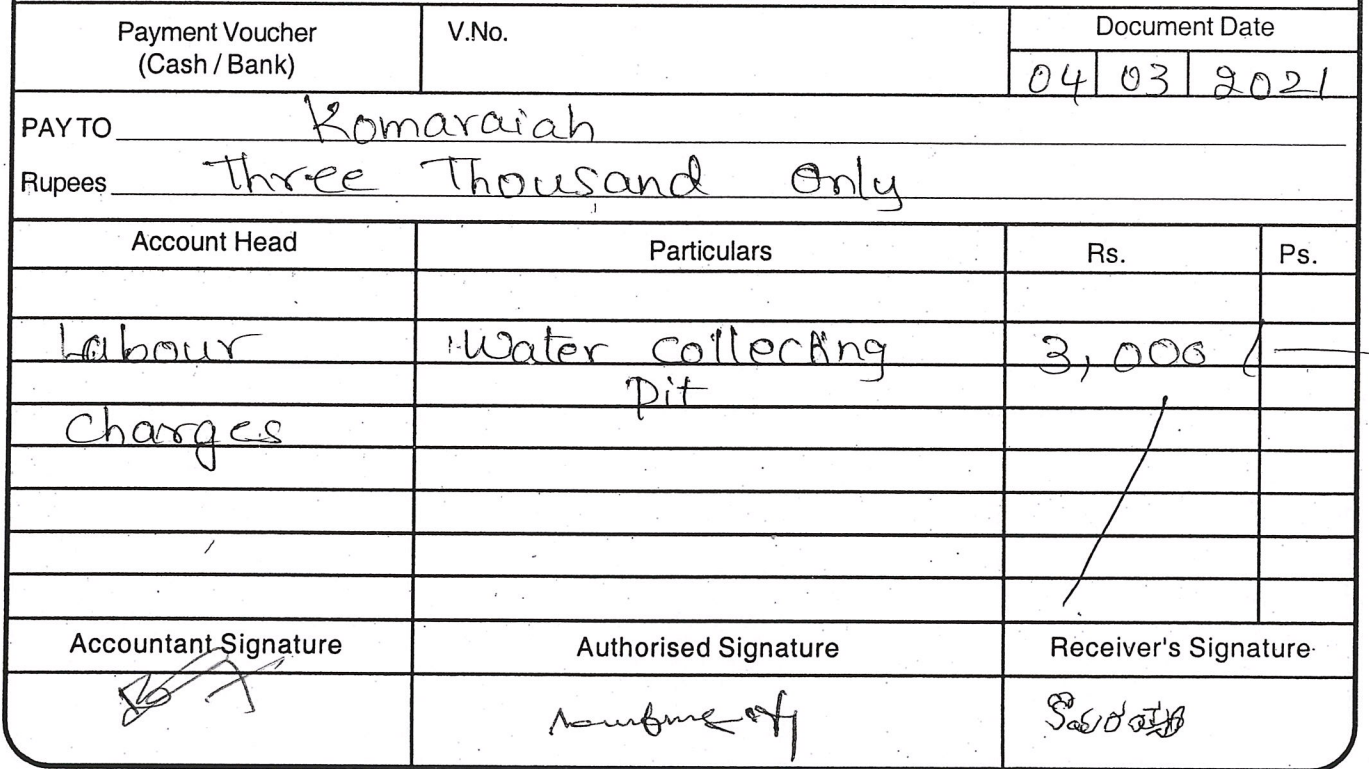 Payment Voucher
(Cash / Bank)
V.No.
Document Date
04 03 2021
PAY TO Komaraiah
Rupees Three Thousand Only
Account Head Particulars Rs. Ps.
Labour Water Collecting 3,000/-
Pit
Charges
Accountant Signature Authorised Signature Receiver's Signature